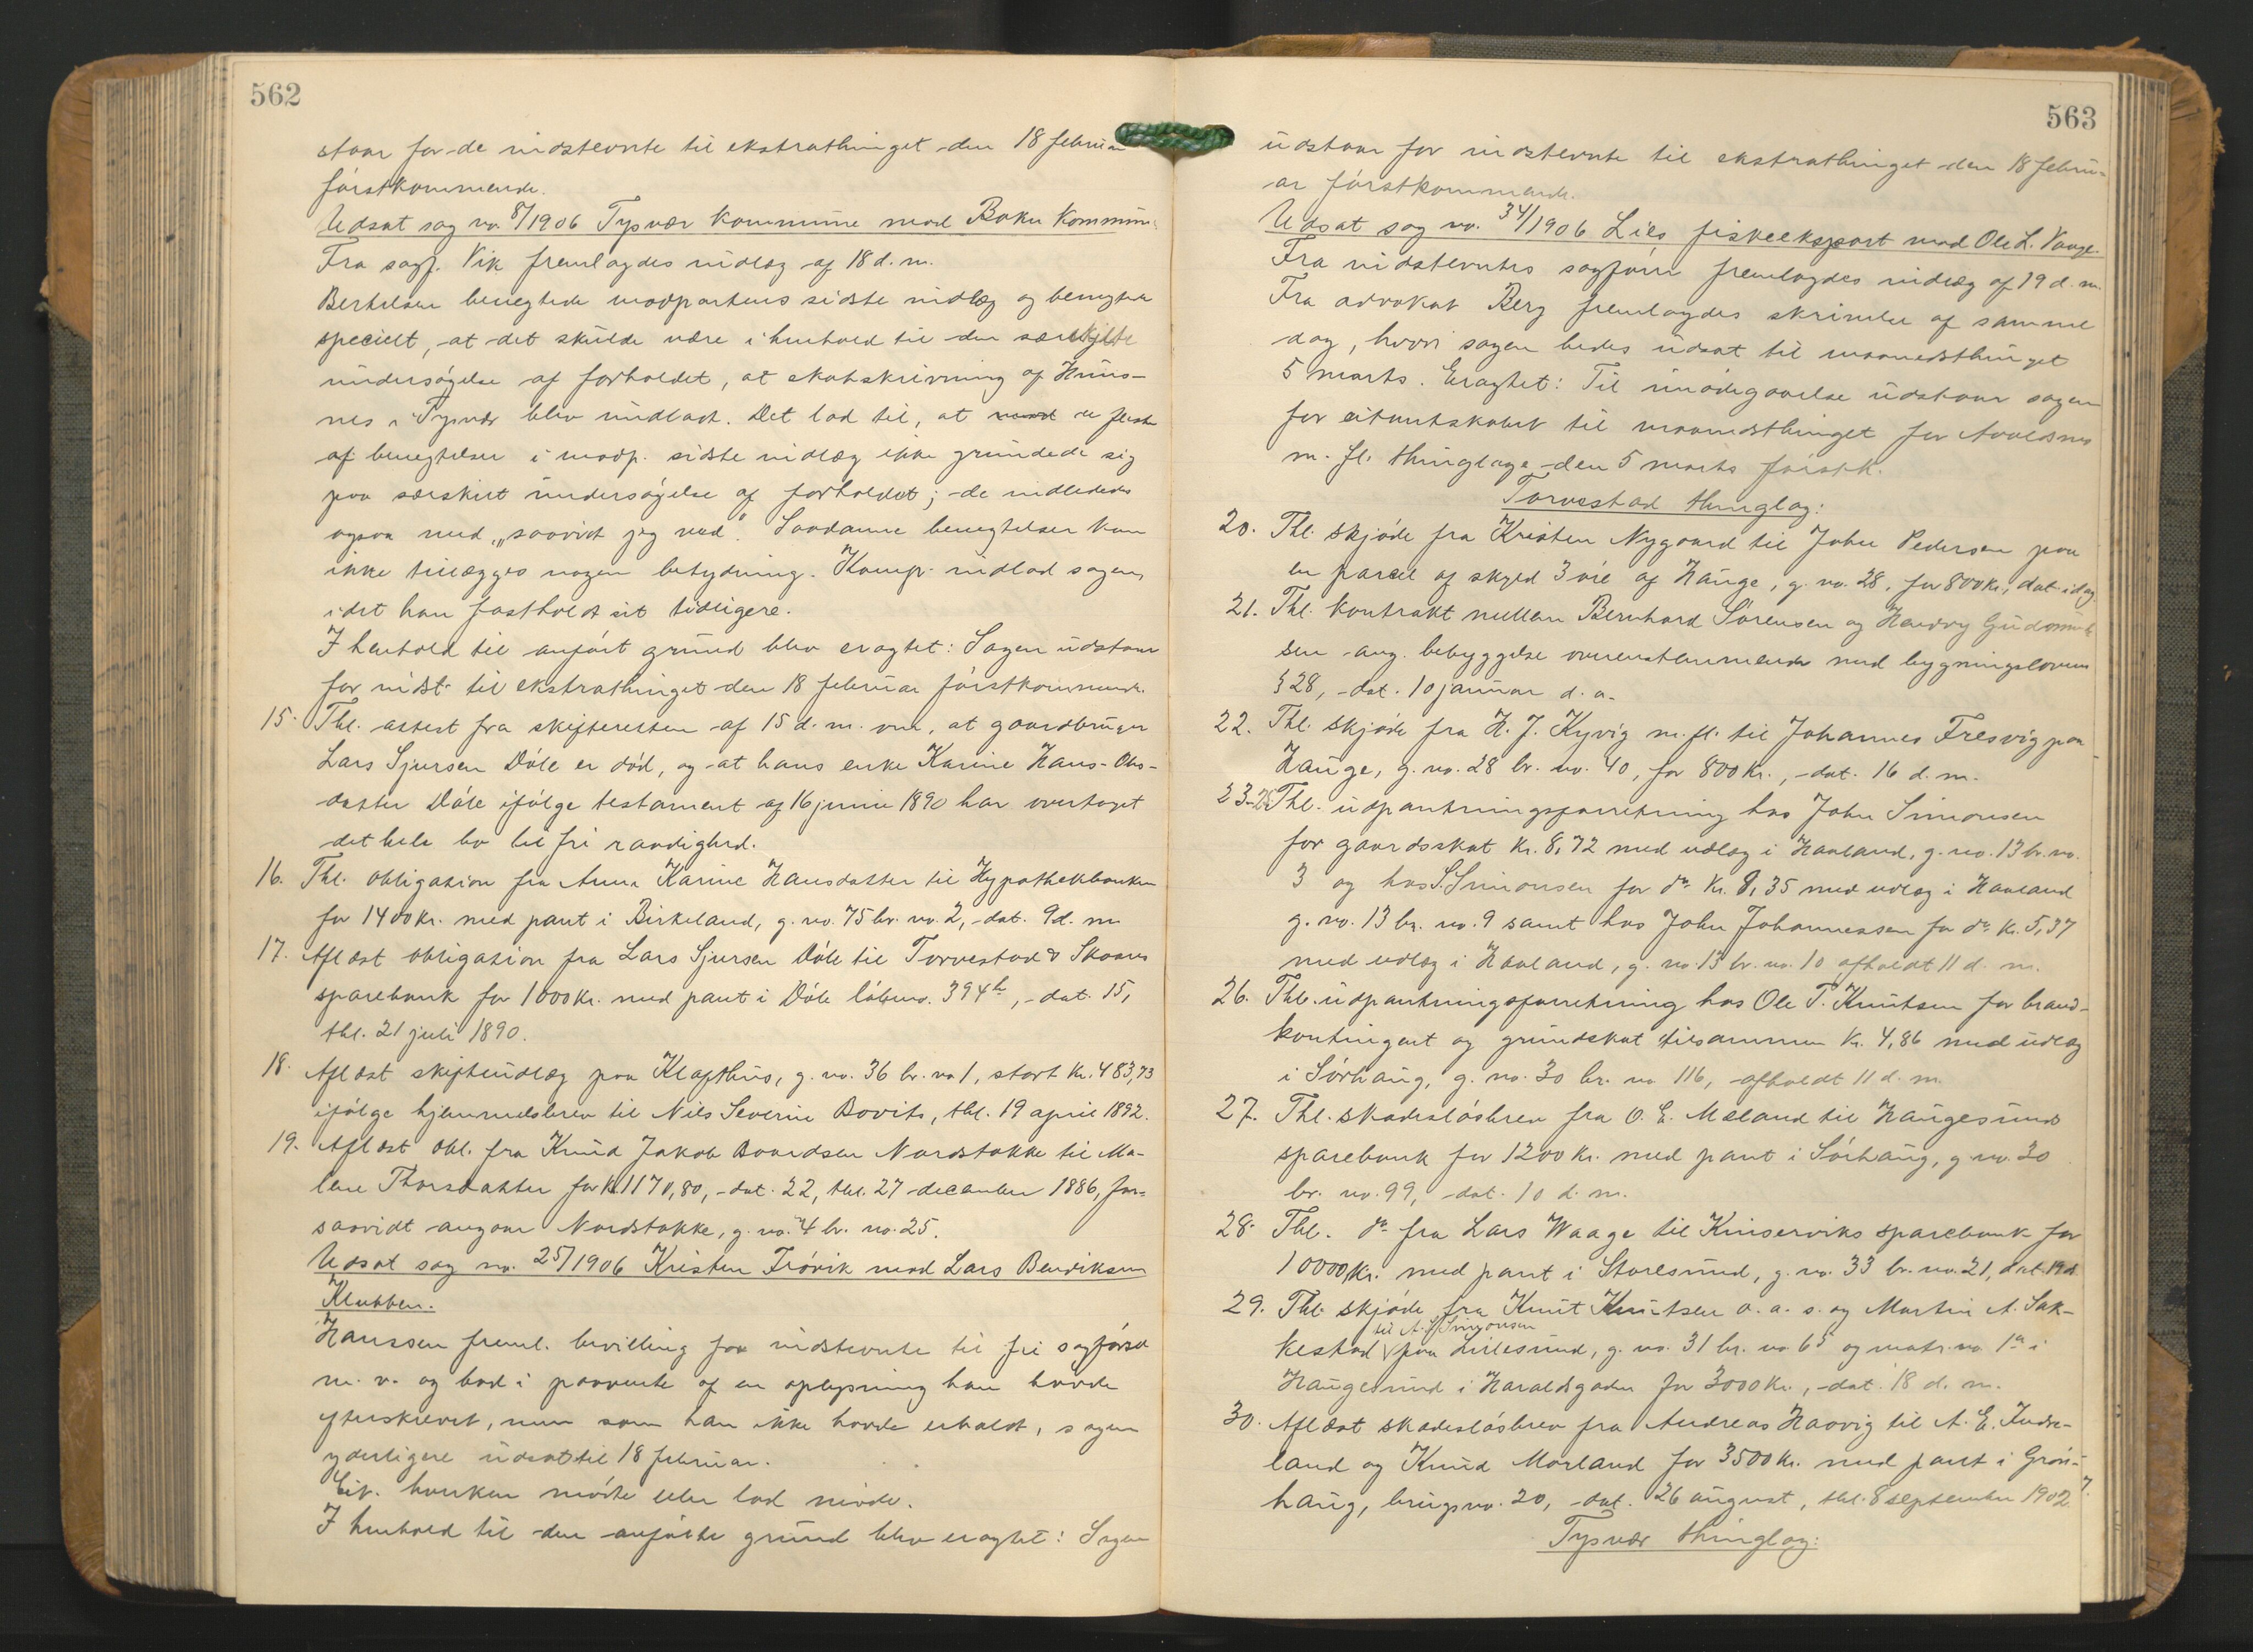 562
staar for de indstevnte til ekstrathinget den 18 februar
førstkommende.
Udsat sag no 8/1906 Tysvær kommune mod Bokn kommune
Fra sagf. Vik fremlagdes indlæg af 18 d. m.
Bertelsen benegtede modpartens sidste indlæg og benegter
specielt, at det skulde være i henhold til den særskilte
undersøgelse af forholdet, at skatskrivning af Huus-
nes i Tysvær blev undladt. Det lod til, at de fleste
af benegtelser i modp. sidste indlæg ikke grundede sig
paa særskilt undersøgelse af forholdet; de indlededes
ogsaa med „saavidt jeg ved“. Saadanne benegtelser kan
ikke tillægges nogen betydning. Komp. indlod sagen,
idet han fastholdt sit tidligere.
I henhold til anført grund blev eragtet: Sagen udstaar
for indst. til ekstrathinget den 18 februar førstkommende.
15. Thl. attest fra skifteretten af 15 d. m. om, at gaardbruger
Lars Sjursen Døle er død, og at hans enke Karine Hans-Ols-
datter Døle ifølge testament af 16 juni 1890 har overtaget
det hele bo til fri raadighed.
16. Thl. obligation fra Anna Karine Hansdatter til Hypothekbanken
for 1400 kr. med pant i Birkeland, g. no. 75 br. no. 2, dat. 9 d. m.
17. Aflæst obligation fra Lars Sjursen Døle til Torvestad & Skaare
sparebank for 1000 kr. med pant i Døle løbeno. 394 b, dat. 15,
thl. 21 juli 1890.
18. Aflæst skifteudlæg paa Klapthus, g. no. 36 br. no 1, stort kr. 483,73
ifølge hjemmelsbrev til Nils Severin Bovits, thl. 19 april 1892.
19. Aflæst obl. fra Knud Jakob Baardsen Nordstokke til Ma-
lene Thorsdatter for kr 1170,80, dat. 22, thl. 27 december 1886, for-
saavidt angaar Nordstokke, g. no. 4 br. no. 25.
Udsat sag no. 25/1906 Kristen Frøvik mod Lars Bendiksen
Klubben.
Hanssen freml. bevilling for indstevnte til fri sagførsel
m. v. og bad i paavente af en oplysning han havde
efterskrevet, men som han ikke havde erholdt, sagen
yderligere udsat til 18 februar.
Cit. hverken mødte eller lod møde.
I henhold til den anførte grund blev eragtet: Sagen
563
udstaar for indstevnte til ekstrathinget den 18 febru-
ar førstkommende.
Udsat sag no. 34/1906 Lies fiskeeksport mod Ole L. Vaage.
Fra indstevntes sagfører fremlagdes indlæg af 19 d. m.
Fra advokat Berg fremlagdes skrivelse af samme
dag, hvori sagen bedes udsat til maanedsthinget
5 marts. Eragtet: Til imødegaaelse udstaar sagen
for citantskabet til maanedsthinget for Avaldsnes
m. fl. thinglage den 5 marts førstk.
Torvestad thinglag:
20. Thl. skjøde fra Kristen Nygaard til John Pedersen paa
en parcel af skyld 3 øre af Hauge, g. no. 28, for 800 kr., dat. idag.
21. Thl. kontrakt mellem Bernhard Sørensen og Hendry Gudmund-
sen ang. bebyggelse overensstemmende med bygningslovens
§ 28, dat. 10 januar d. a.
22. Thl. skjøde fra H. J. Kyvig m. fl. til Johannes Fresvig paa
Hauge, g. no. 28 br. no. 40, for 800 kr., dat. 16 d. m.
23-25 Thl. udpantningsforretning hos John Simonsen
for gaardsskat kr. 8,72 med udlæg i Haaland, g. no. 13 br. no.
3 og hos S. Simonsen for do kr. 8,35 med udlæg i Haaland
g. no. 13 br. no. 9 samt hos John Johannessen for do kr. 5,37
med udlæg i Haaland, g. no. 13 br. no. 10 afholdt 11 d. m.
26. Thl. udpantningsforretning hos Ole T. Knutsen for brand-
kontingent og grundskat tilsammen kr. 4,86 med udlæg
i Sørhaug, g. no. 30 br. no 116, afholdt 11 d. m.
27. Thl. skadesløsbrev fra O. E. Mæland til Haugesunds
sparebank for 1200 kr. med pant i Sørhaug, g no. 30
br. no. 99, dat. 10 d. m.
28. Thl. do fra Lars Waage til Kinserviks sparebank for
10000 kr. med pant i Storesund, g. no. 33 br. no. 21, dat. 19 d.
29. Thl. skjøde fra Knut Knutsen o. a. s. og Martin A. Sak-
til A. S. Simonsen
kestad paa Lillesund, g. no. 31 br. no 65 og matr. no. 1a i
Haugesund i Haraldsgaden for 3000 kr., dat. 18 d. m.
30. Aflæst skadesløsbrev fra Andreas Haavig til A. E. Indre-
land og Knud Morland for 3500 kr. med pant i Grøn-
haug, brugsno. 20, dat. 26 august, thl. 8 september 1902.
Tysvær thinglag: